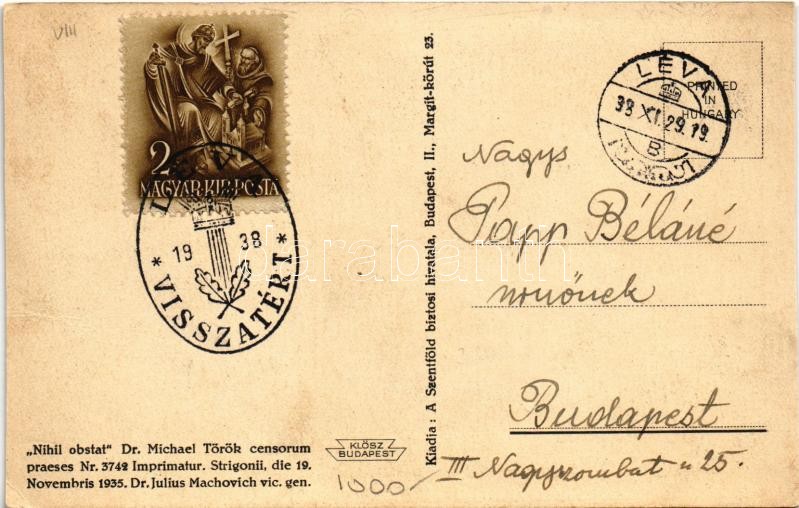 VIII
2
MAGYAR·KIR·POSTA
LÉVA
1938
* VISSZATÉRT *
„Nihil obstat" Dr. Michael Török censorum
praeses Nr. 3742 Imprimatur. Strigonii, die 19.
Novembris 1935. Dr. Julius Machovich vic. gen.
KLÖSZ
BUDAPEST
Kiadia: A Szentföld biztosi hivatala, Budapest, II., Margit-körút 23.
PRINTED
IN
HUNGARY
LÉVA
38 XI. 29. 19.
B
Nagys
Papp Béláné
Budapest
III Nagyszombat u 25.
1000
darabanth.com